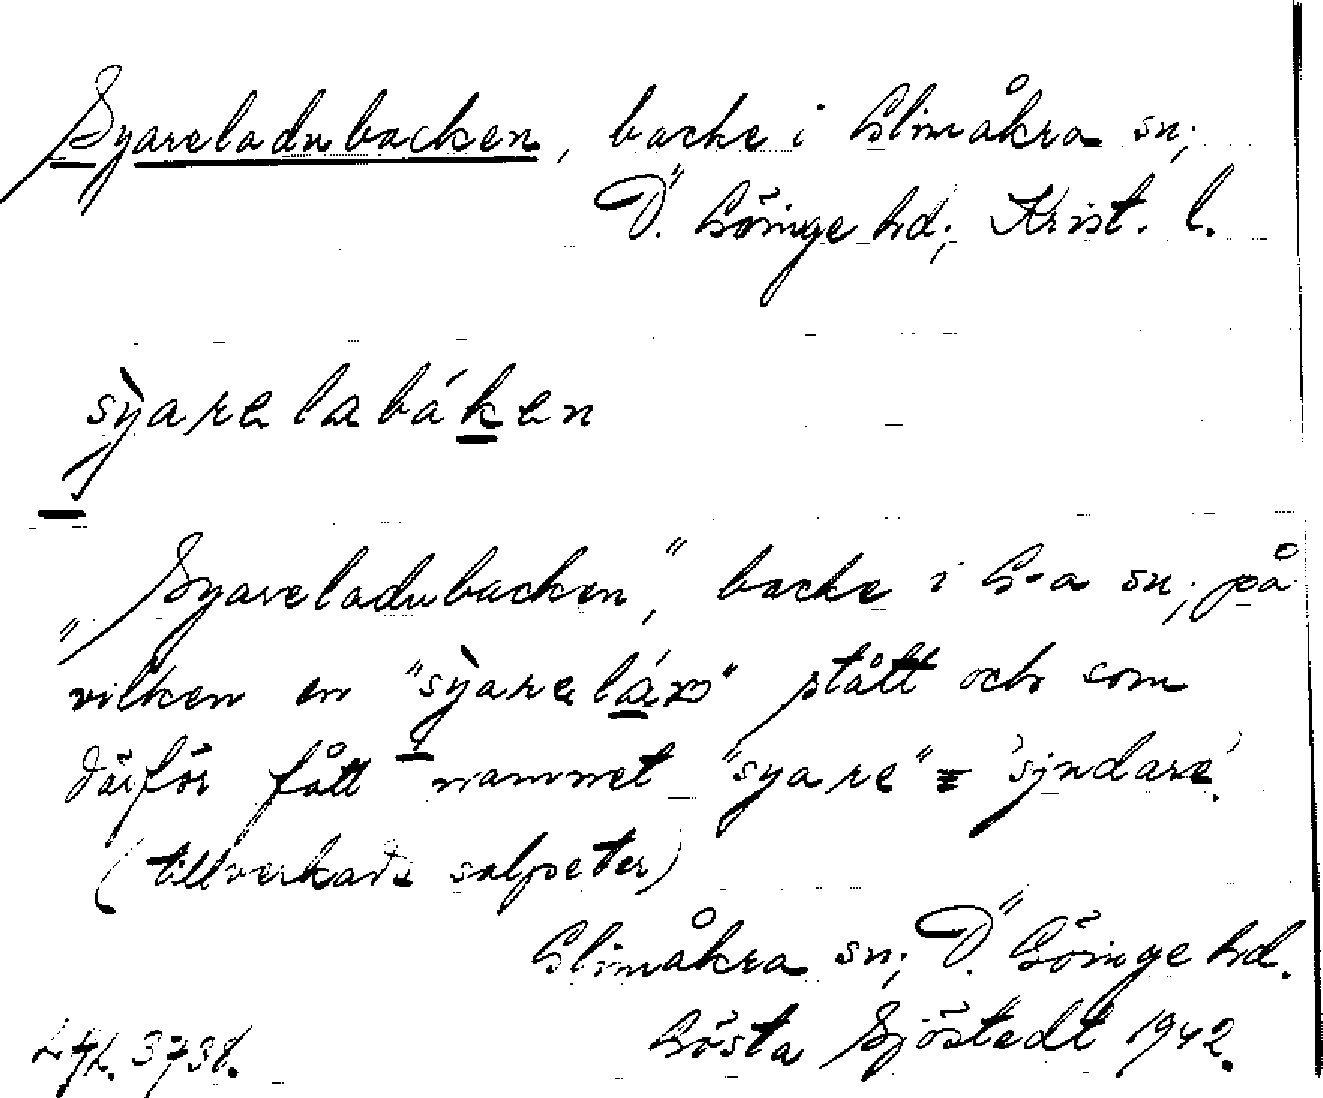 Syareladubacken, backe i Glimåkra sn;
Ö. Göinge hd; Krist. l.
sỳarelabáken
"Syareladubacken", backe i G-a sn; på
vilken en "sỳareláᴔ" stått och som
därför fått namnet "syare" = 'sjudare'.
(tillverkade salpeter)
Glimåkra sn; Ö. Göinge hd.
Gösta Sjöstedt 1942.